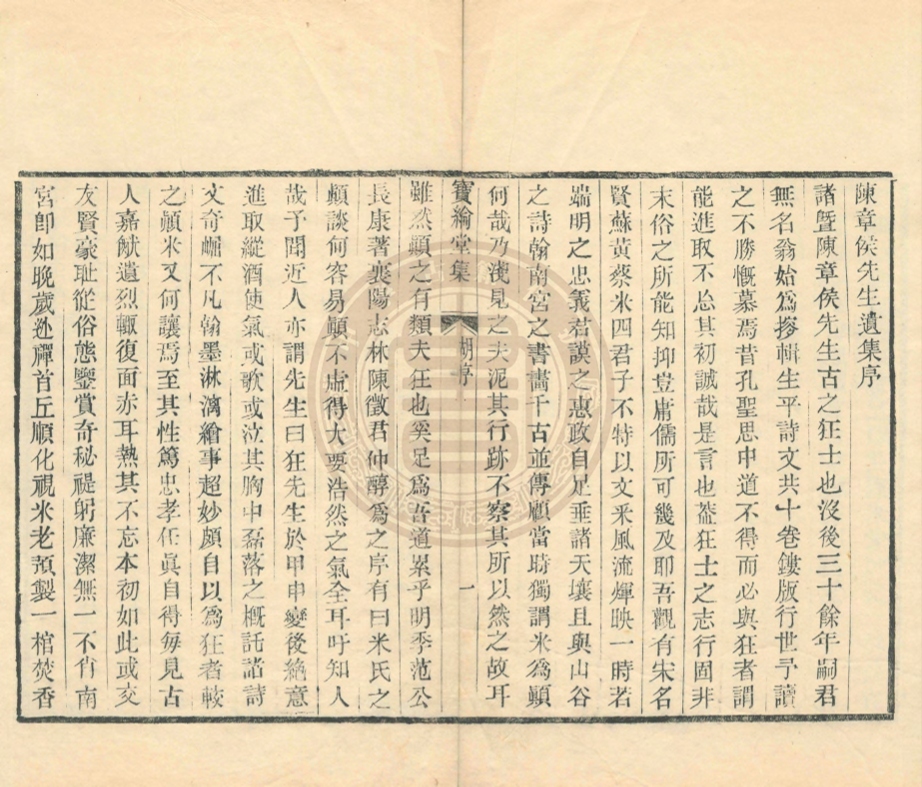 陳章侯先生遺集序
諸曁陳章侯先生古之狂士也沒後三十餘年嗣君
無名翁始爲搜輯生平詩文共十卷鏤版行世予讀
之不勝慨慕焉昔孔聖思中道不得而必與狂者謂
能進取不忘其初誠哉是言也葢狂士之志行固非
末俗之所能知抑豈庸儒所可幾及耶吾觀有宋名
賢蘇黃蔡米四君子不特以文采風流煇映一時若
端明之忠義君謨之惠政自足垂諸天壤且與山谷
之詩翰南宮之書畵千古並傳顧當時獨謂米爲顚
何哉乃淺見之夫泥其行跡不察其所以然之故耳
寶綸堂集
胡序
一
雖然顚之有類夫狂也奚足爲吾道累乎明季范公
長康著襄陽志林陳徵君仲醇爲之序有曰米氏之
顚談何容易顚不虛得大要浩然之氣全耳吁知人
哉予聞近人亦謂先生曰狂先生於甲申變後絶意
進取縱酒使氣或歌或泣其胸中磊落之槪託諸詩
文奇崛不凡翰墨淋漓繪事超妙頗自以爲狂者較
之顚米又何讓焉至其性篤忠孝任眞自得每見古
人嘉猷遺烈輒復面赤耳熱其不忘本初如此或交
友賢豪耻從俗態鑒賞奇秘禔躬廉潔無一不肖南
宮卽如晚歲逃禪首丘順化視米老預製一棺焚香